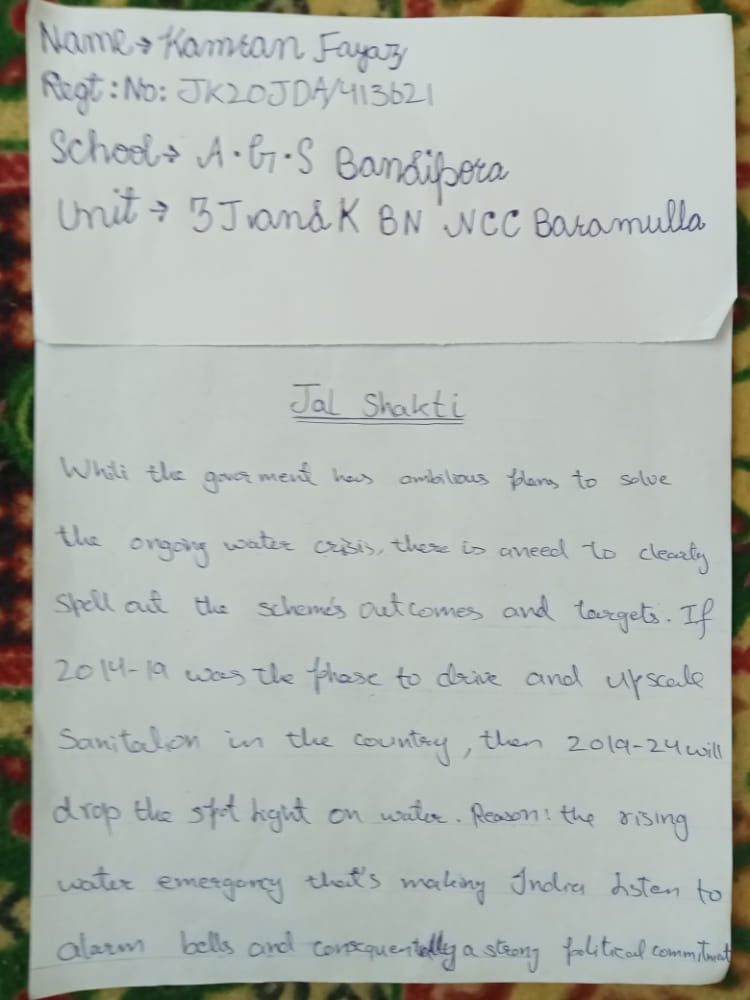 Name→ Kamran Fayaz
Regt:No: JK20JDA/413621
School→ A.G.S Bandipora
Unit → 3 J and K BN NCC Baramulla
Jal Shakti
Whili the goverment has ambilious plans to solve
the ongoing water crisis, there is aneed to clearly
spell out the scheme's outcomes and targets. If
2014-19 was the phase to drive and upscale
Sanitalion in the country, then 2019-24 will
drop the spot light on water. Reason: the rising
water emergancy that's making India listen to
alarm bells and consequentally a strong political commitment